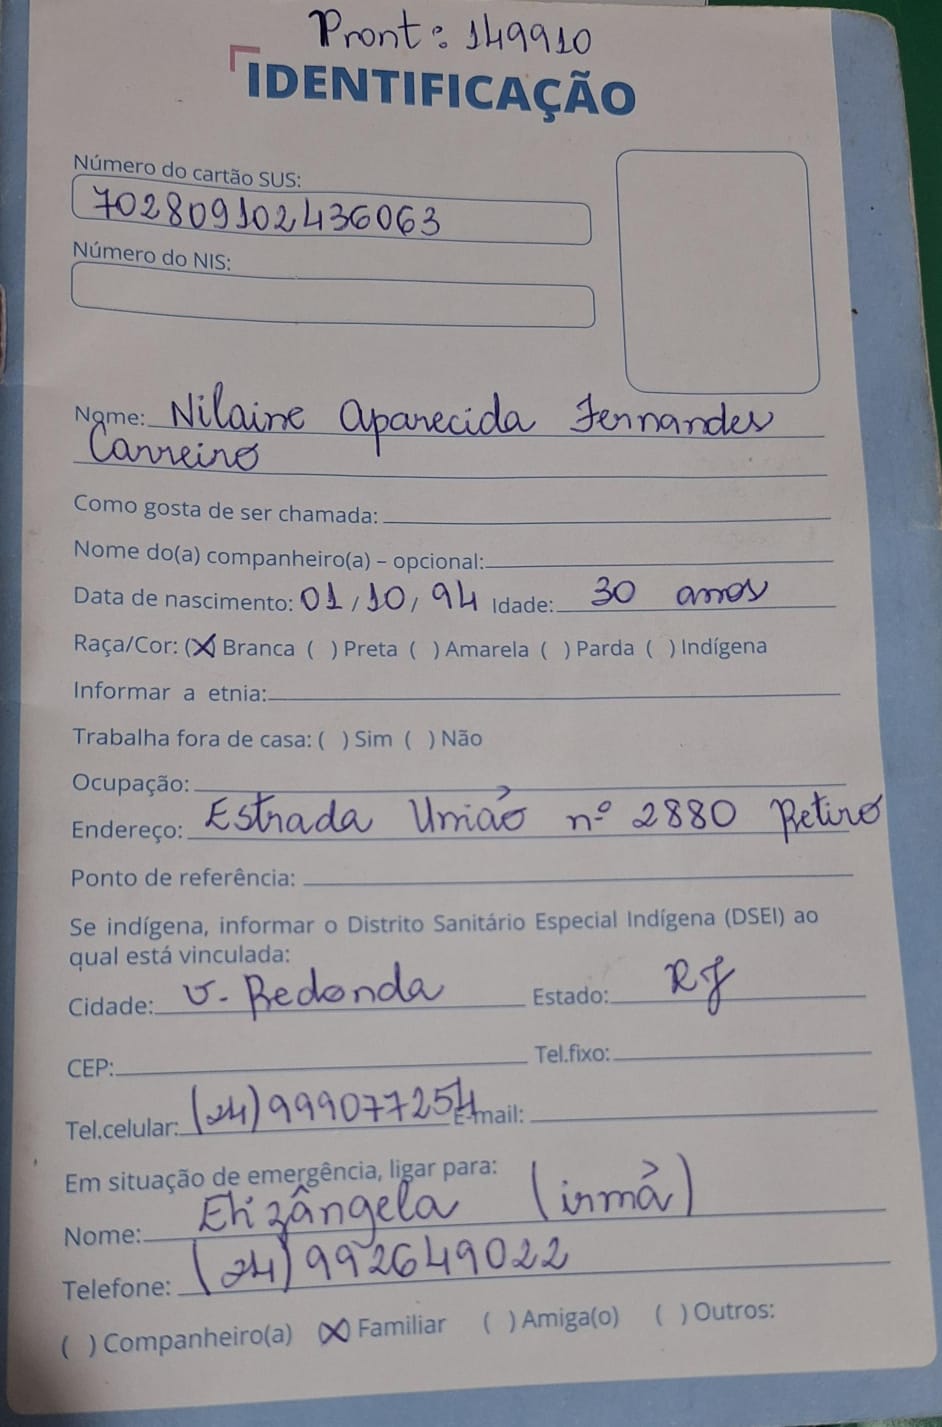 Pront: 149910
IDENTIFICAÇÃO
Número do cartão SUS:
702809102436063
Número do NIS:
Nome: Nilaine Aparecida Fernandes
Carreiro
Como gosta de ser chamada:
Nome do(a) companheiro(a) - opcional:
Data de nascimento: 01/10/94 Idade: 30 anos
Raça/Cor: (X) Branca ( ) Preta ( ) Amarela ( ) Parda ( ) Indígena
Informar a etnia:
Trabalha fora de casa: ( ) Sim ( ) Não
Ocupação:
Endereço: Estrada União nº 2880 Retiro
Ponto de referência:
Se indígena, informar o Distrito Sanitário Especial Indígena (DSEI) ao
qual está vinculada:
Cidade: V. Redonda Estado: RJ
CEP: Tel.fixo:
Tel.celular: (24) 999077254 E-mail:
Em situação de emergência, ligar para:
Nome: Elizângela (irmã)
Telefone: (24) 992649022
( ) Companheiro(a) (X) Familiar ( ) Amiga(o) ( ) Outros: